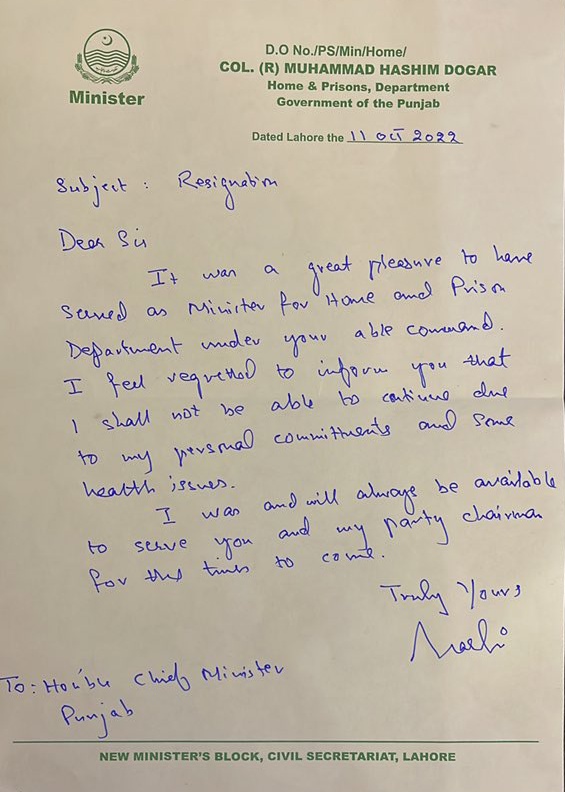 D.O No./PS/Min/Home/
COL. (R) MUHAMMAD HASHIM DOGAR
Minister
Home & Prisons, Department
Government of the Punjab
Dated Lahore the 11 OCT 2022
Subject : Resignation
Dear Sir
It was a great pleasure to have
served as Minister for Home and Prison
Department under your able command.
I feel regretted to inform you that
I shall not be able to continue due
to my personal committments and some
health issues.
I was and will always be available
to serve you and my party chairman
for the times to come.
Truly Yours
To: Hon'ble Chief Minister
Punjab
NEW MINISTER'S BLOCK, CIVIL SECRETARIAT, LAHORE